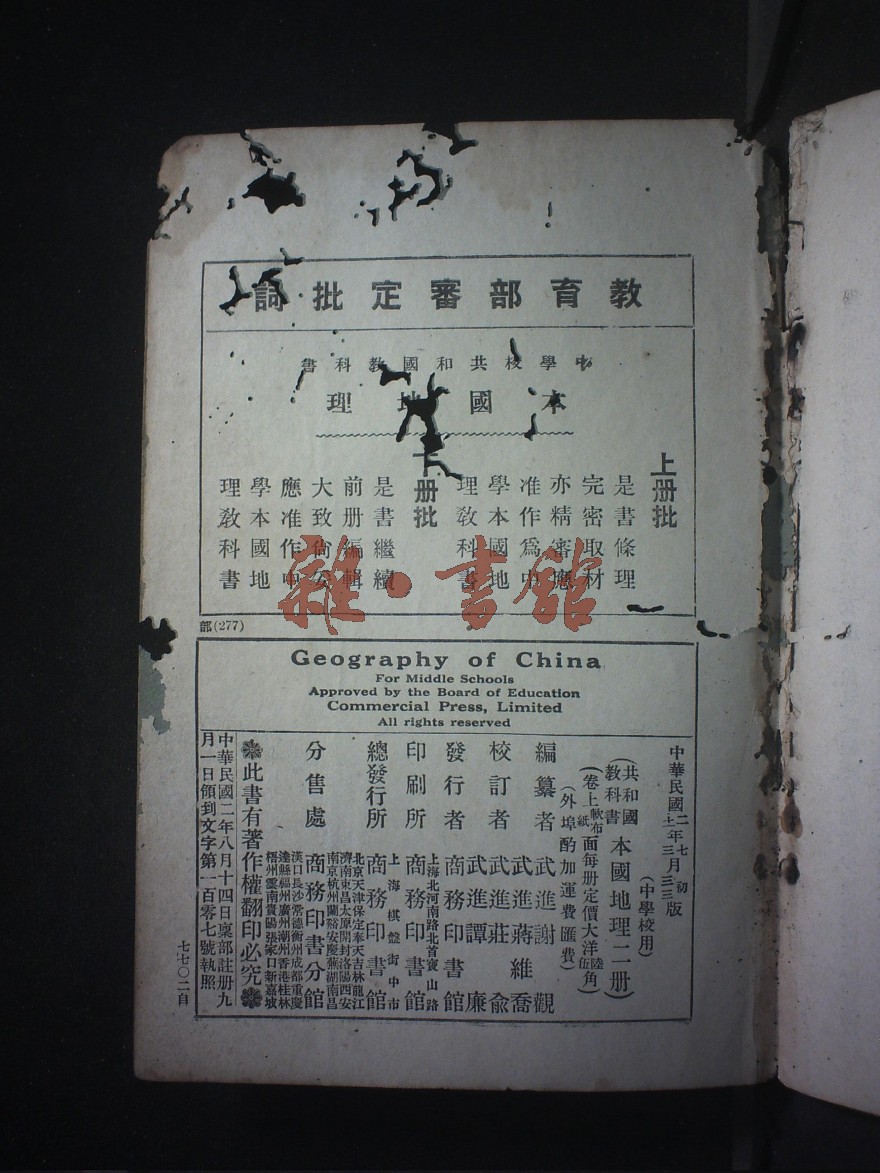 教育部審定批詞
中學校共和國教科書
本國地理
上册批
是書條理
完密取材
亦精審應
准作爲中
學本國地
理教科書
下册批
是書繼續
前册編輯
大致尙公
應准作中
學本國地
理教科書
雜·書館
部(277)
Geography of China
For Middle Schools
Approved by the Board of Education
Commercial Press, Limited
All rights reserved
中華民國二年七月初版
(中學校用)
(共和國教科書本國地理二册)
(外埠酌加運費匯費)
編纂者 武進謝觀
校訂者 武進蔣維喬
武進莊俞
武進譚廉
發行者 商務印書館
上海北河南路北首寶山路
印刷所 商務印書館
上海棋盤街中市
總發行所 商務印書館
北京天津保定奉天吉林龍江
濟南東昌太原開封洛陽西安
南京杭州蘭谿安慶蕪湖南昌
分售處 商務印書分館
漢口長沙常德衡州成都重慶
達縣福州廣州潮州香港桂林
梧州雲南貴陽張家口新嘉坡
此書有著作權翻印必究
中華民國二年八月十四日稟部註册九
月一日領到文字第一百零七號執照
七七〇二自